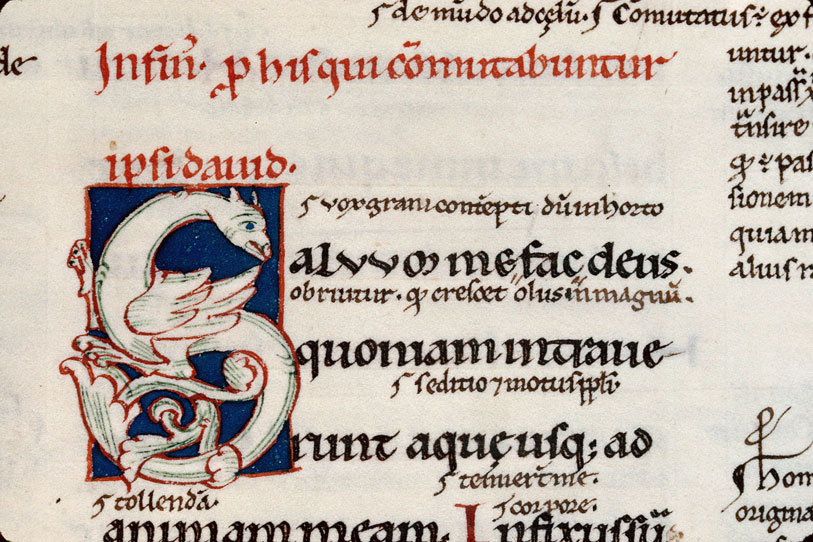 de
ſ de mũdo ad cęlũ. ſ Cõmutatus
Infinẽ. ꝓ hiſ qui cõmutabuntur
ipſi dauid.
ſ vox grani contẽpti dũ in horto
SalvvꝎ me fac deus.
obruitur. ꝙ creſcet olus magnũ.
quoniam intraue
ſ ſeditio ⁊ motus ppl̃i
runt aquę uſq; ad
ſ tenuer̃t me.
ſ tollendã. ſ corpore.
animam meam. Infixuſ ſũ
untur.
in paſſ
tñſire
ꝙ ÷ paſ
ſionem
quiam
alius
hom
origina